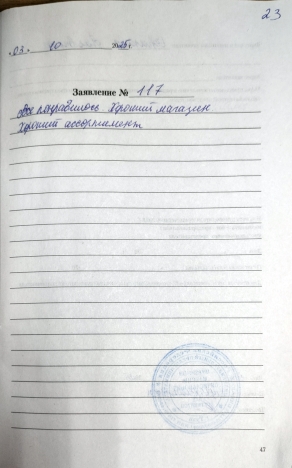 23
«03» 10 2025г
Заявление № 117
Все понравилось. Хороший магазин
Хороший ассортимент
47